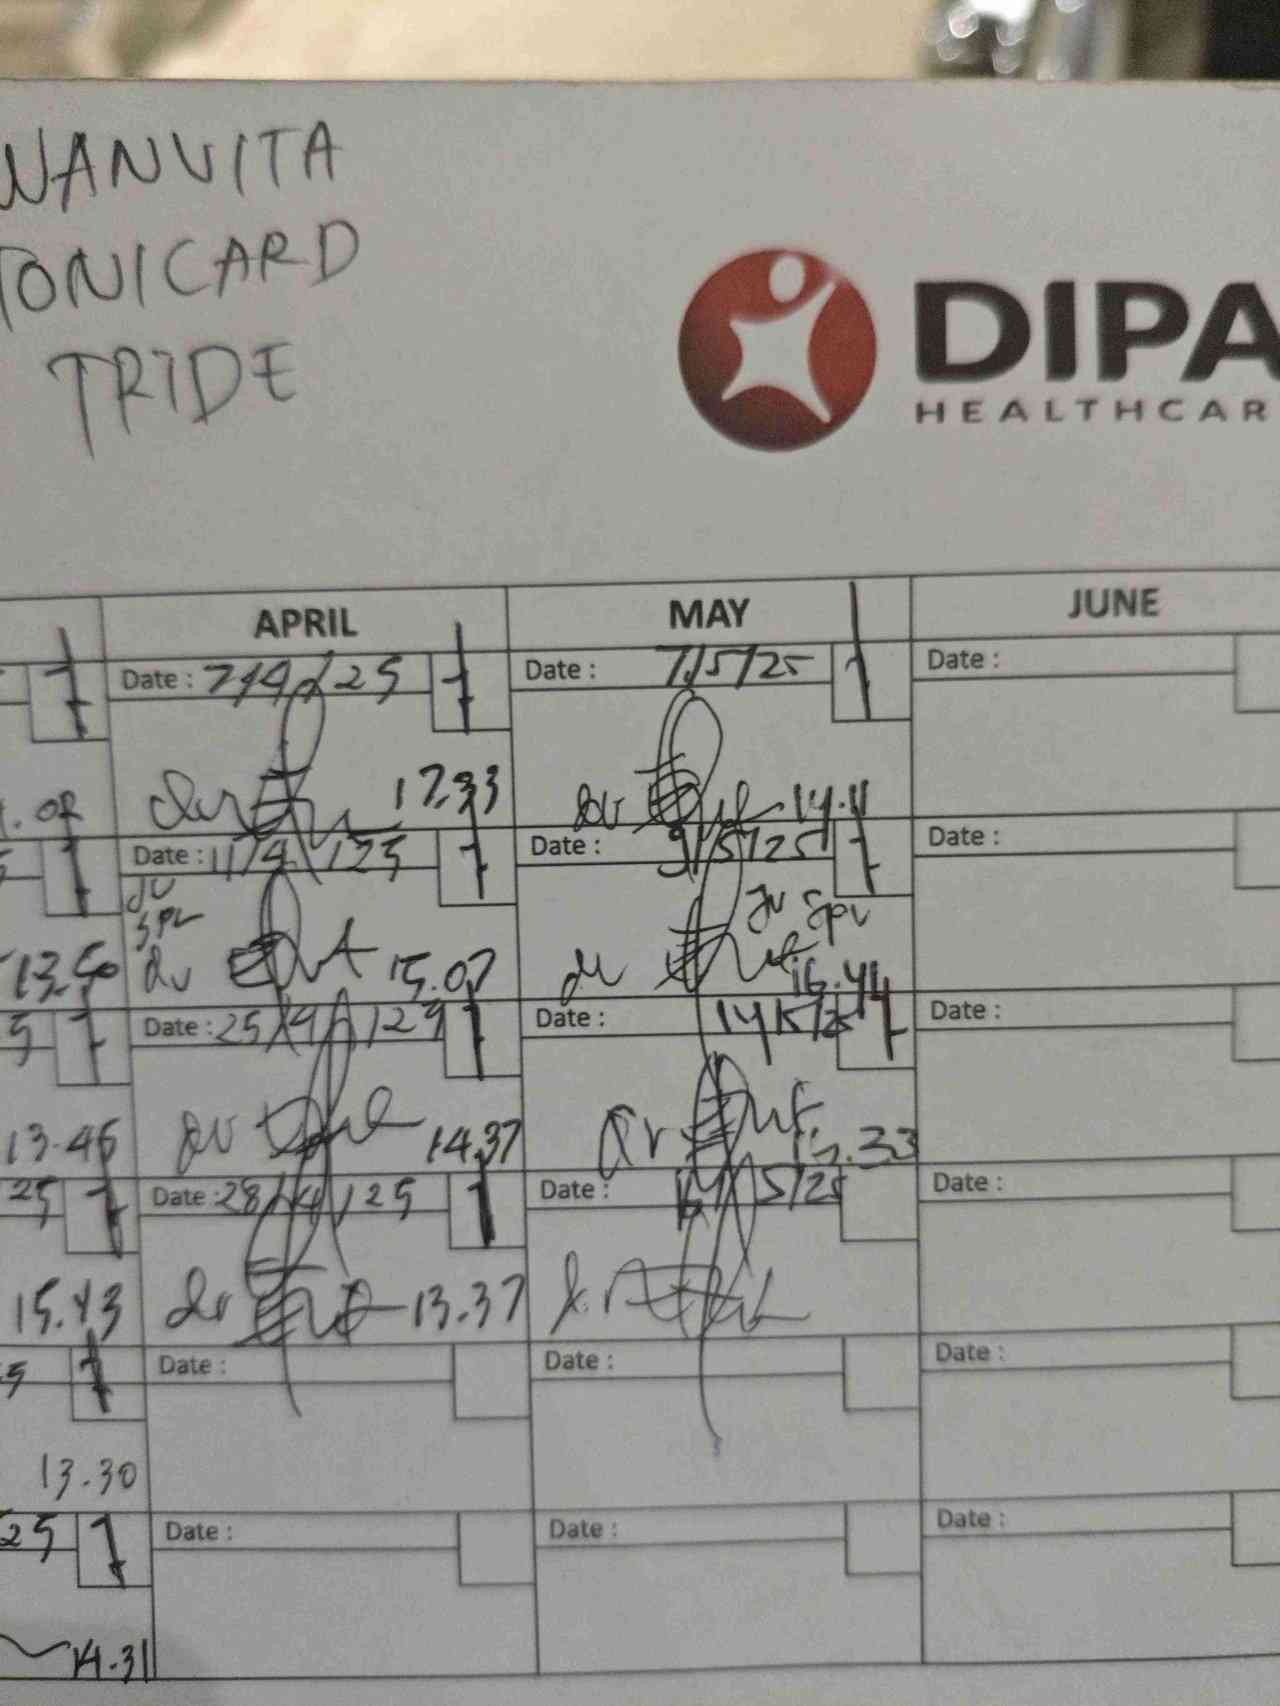 WANVITA
TONICARD
TRIDE
DIPA
HEALTHCAR
APRIL MAY JUNE
Date : 7/4/25 Date : 7/5/25 Date :
17.33 14.11
Date : 11/4/25 Date : 9/5/25 Date :
JV JV Spv
spv
13.50 dr 15.07 16.44
Date : 25/4/25 Date : 14/5/25 Date :
13.46 dr 14.37 dr
25 Date : 28/4/25 Date : 16/5/25 Date :
15.43 dr 13.37
Date : Date : Date :
13.30
25 Date : Date : Date :
14.31